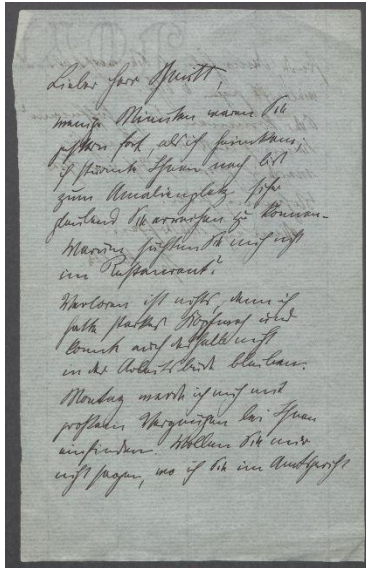 Lieber Herr Schmitt,
wenige Minuten waren Sie
gestern fort, als ich heimkam;
ich stürmte Ihnen nach bis
zum Amalienplatz sicher
glaubend Sie erreichen zu können.
Warum suchten Sie mich nicht
im Restaurant?
Verloren ist nichts, denn ich
hatte starkes Kopfweh und
konnte auch deshalb nicht
in der Arbeitsbude bleiben.
Montag werde ich mich mit
großem Vergnügen bei Ihnen
einfinden. Wollen Sie mir
nicht sagen, wo ich Sie im Amtsgericht